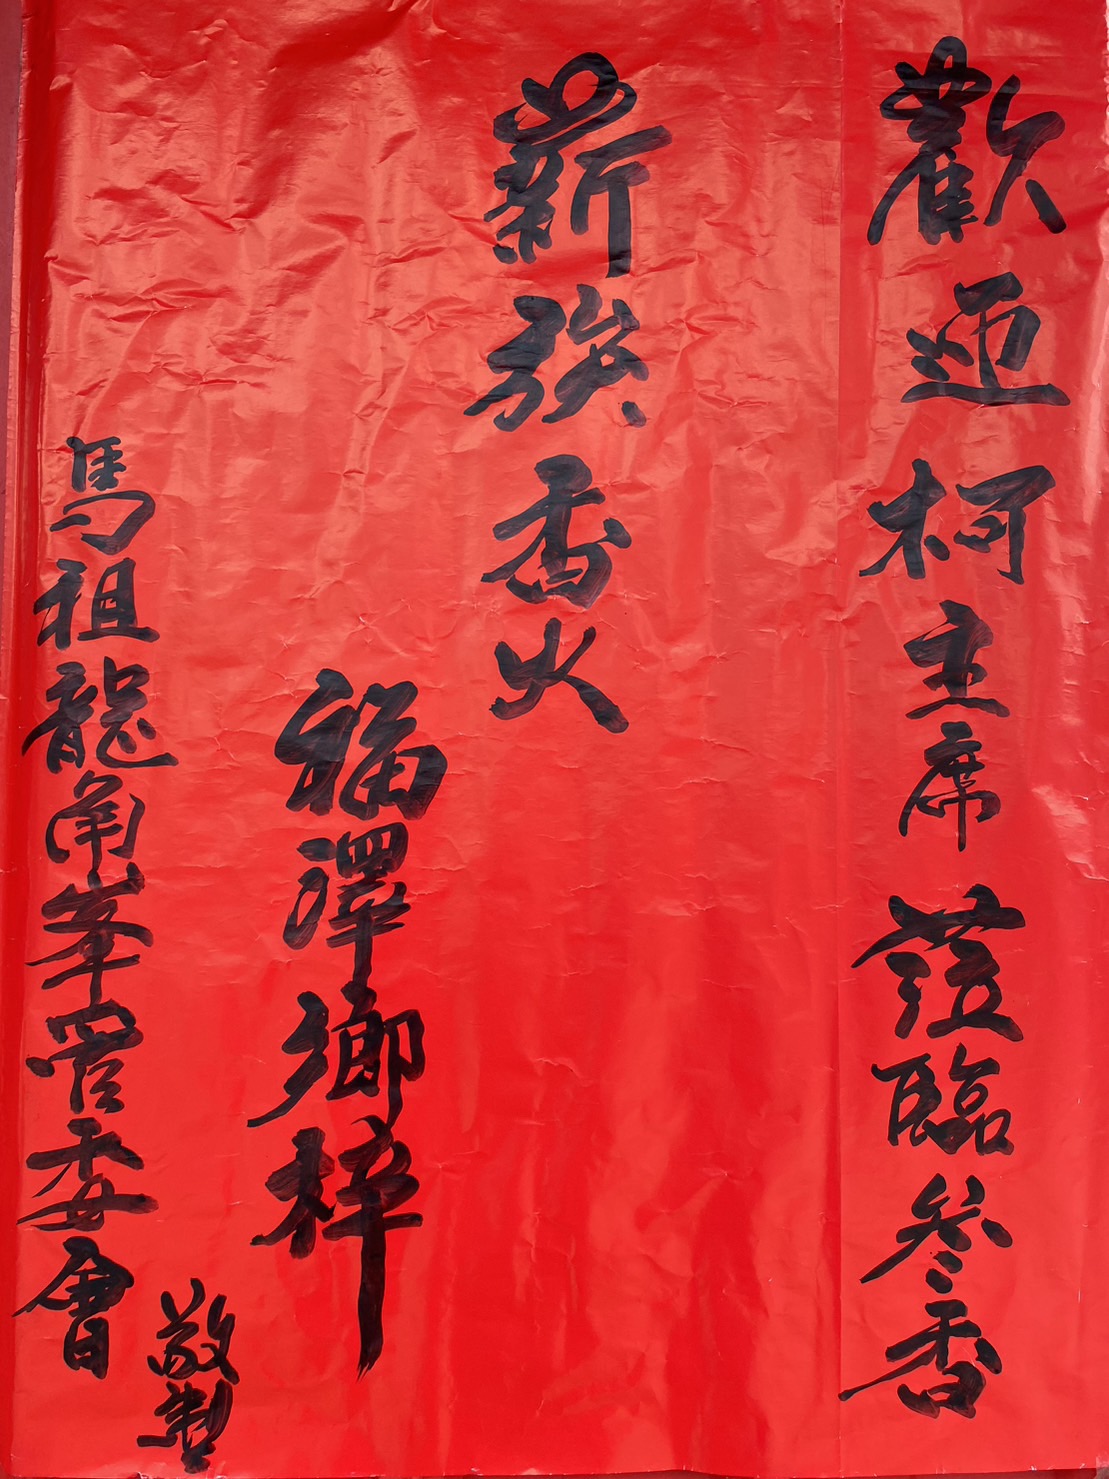 歡迎柯主席蒞臨參香
薪香火
福澤鄉梓
馬祖龍角峯管委會
敬製